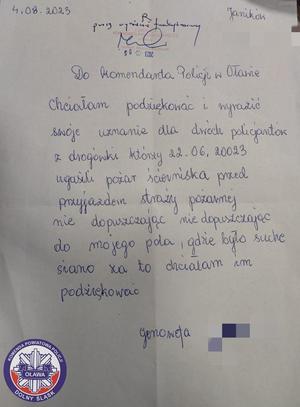 4.08.2023
Janików
R
Do Komendanta Policji w Oławie
Chciałam podziękować i wyrazić
swoje uznanie dla dwóch policjantów
z drogówki którzy 22.06, 20023
ugasili pożar ścierniska przed
przyjazdem straży pożarnej
nie dopuszczając nie dopuszczając
do mojego pola, gdzie było suche
siano za to chciałam im
podziękować
Genowefa
KOMENDA POWIATOWA POLICJI
OŁAWA
DOLNY ŚLĄSK